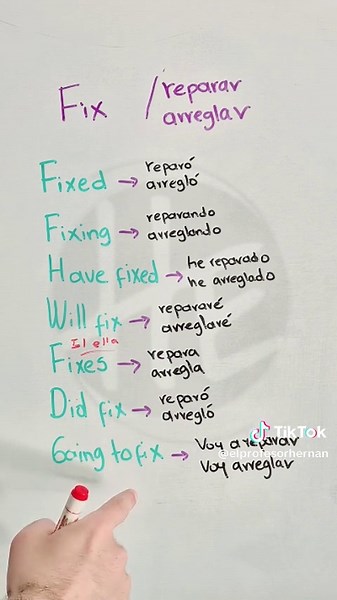 Fix / reparar
arreglar
Fixed → reparó
arregló
Fixing → reparando
arreglando
Have fixed → he reparado
he arreglado
Will fix → repararé
arreglaré
Fixes → repara
arregla
Did fix → reparó
arregló
Going to fix → Voy a reparar
Voy arreglar
TikTok
@elprofesorhernan